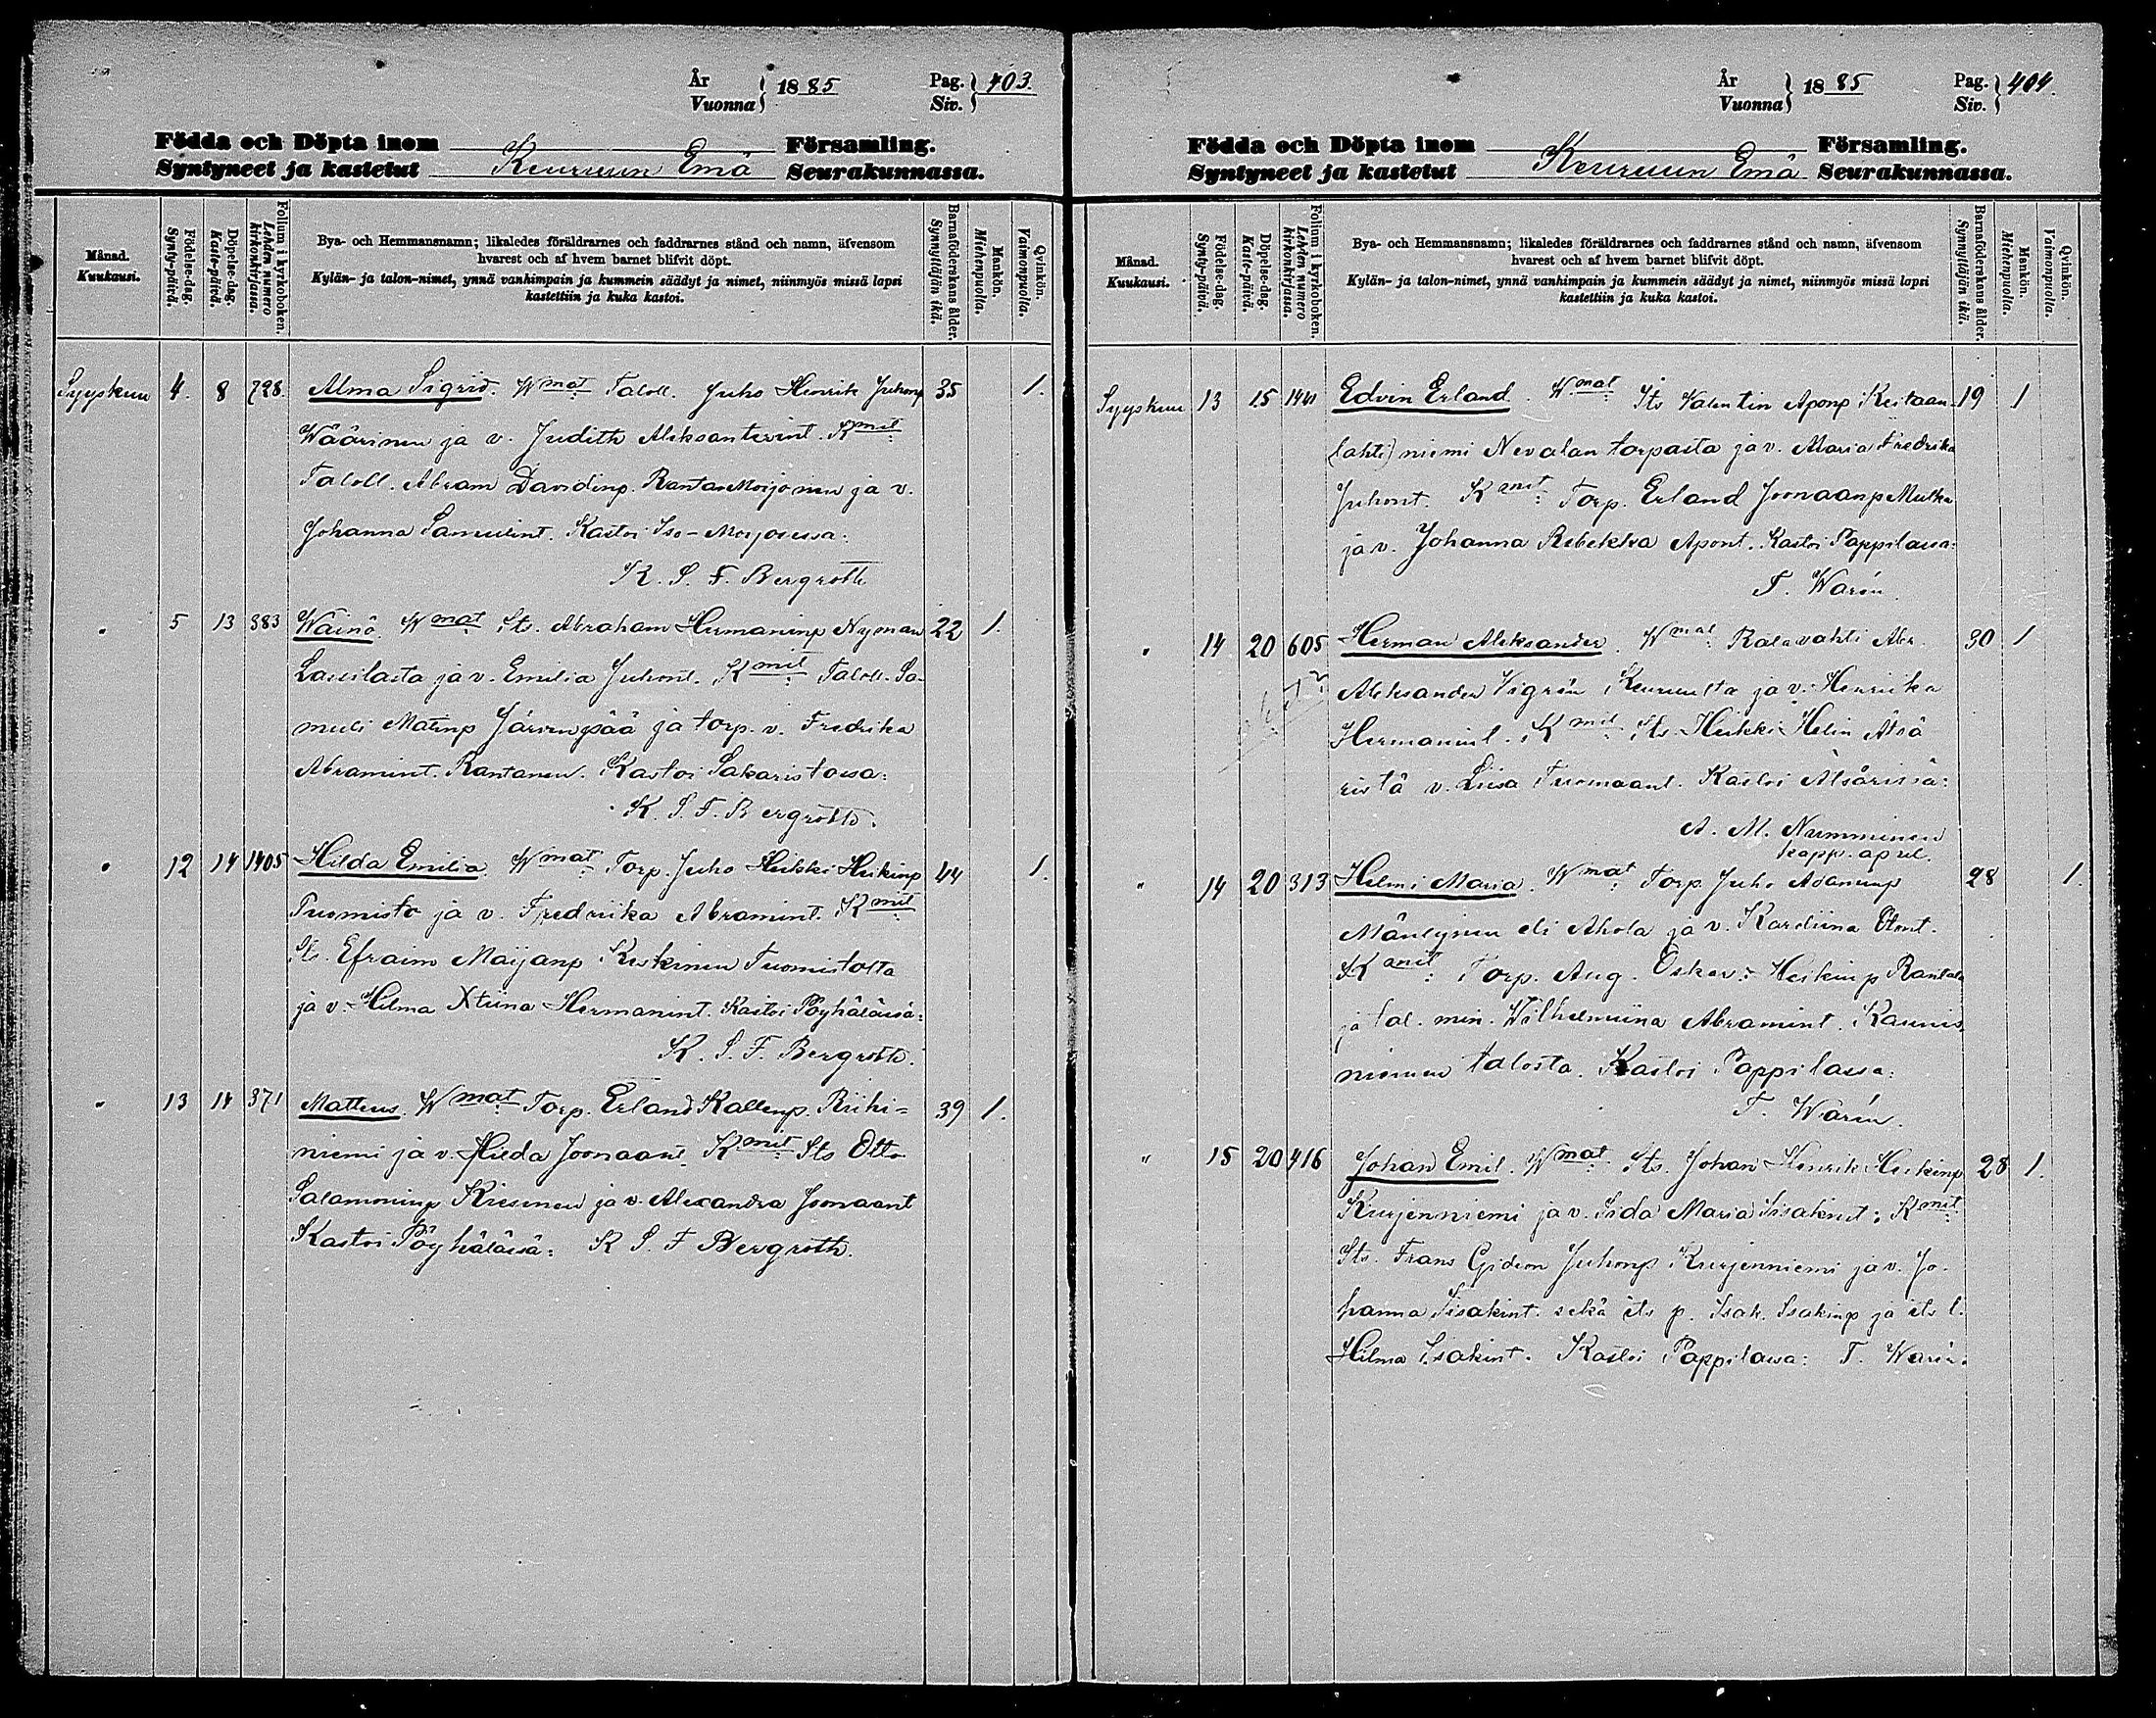 År Vuonna } 1885 Pag. Siv. } 403.
Födda och Döpta inom Församling.
Syntyneet ja kastetut Keuruun Emä Seurakunnassa.
Månad. Kuukausi.
Födelse-dag. Synty-päivä.
Döpelse-dag. Kaste-päivä.
Folium i kyrkoboken. Lehden numero kirkonkirjassa.
Bya- och Hemmansnamn; likaledes föräldrarnes och faddrarnes stånd och namn, äfvensom
hvarest och af hvem barnet blifvit döpt.
Kylän- ja talon-nimet, ynnä vanhimpain ja kummein säädyt ja nimet, niinmyös missä lapsi
kastettiin ja kuka kastoi.
Barnaföderskans ålder. Synnyttäjän ikä.
Mankön. Miehenpuolia.
Qvinkön. Vaimonpuolia.
Syyskuu 4. 8 728. Alma Sigrid. Wmat Taloll. Juho Henrik Juhonp 35 1.
Wäärinen ja v. Judith Aleksanterint. Kmit
Taloll. Abram Davidinp. Rantamoijonen ja v.
Johanna Samulint. Kastoi Iso-Moijosessa:
K. S. F. Bergroth
" 5 13 383 Wäinö. Wmat Its. Abraham Hermaninp Nyman 22 1.
Lauilasta ja v. Emilia Juhont. Kmit: Taloll. Sa-
muli Matinp Järvenpää ja torp. v. Fredrika
Abramint. Rantanen. Kastoi Sakaristossa:
K. S. F. Bergroth.
" 12 14 1405 Hilda Emilia. Wmat: Torp. Juho Heikki Heikinp 44 1.
Tuomisto ja v. Fredriika Abramint. Kmit:
Its. Efraim Maijanp Keskinen Tuomistolta
ja v. Hilma Xtiina Hermanint. Kastoi Pöyhölässä:
K. S. F. Bergroth.
" 13 14 371 Matteus. Wmat Torp. Erland Kallenp. Riihi- 39 1.
niemi ja v. Hilda Joonaant. Kmit: Its Otto
Salamoninp Kiesinen ja v. Alexandra Joonaant
Kastoi Pöyhölässä: K S. F Bergroth.
År Vuonna } 1885 Pag. Siv. } 404.
Födda och Döpta inom Församling.
Syntyneet ja kastetut Keuruun Emä Seurakunnassa.
Månad. Kuukausi.
Födelse-dag. Synty-päivä.
Döpelse-dag. Kaste-päivä.
Folium i kyrkoboken. Lehden numero kirkonkirjassa.
Bya- och Hemmansnamn; likaledes föräldrarnes och faddrarnes stånd och namn, äfvensom
hvarest och af hvem barnet blifvit döpt.
Kylän- ja talon-nimet, ynnä vanhimpain ja kummein säädyt ja nimet, niinmyös missä lapsi
kastettiin ja kuka kastoi.
Barnaföderskans ålder. Synnyttäjän ikä.
Mankön. Miehenpuolia.
Qvinkön. Vaimonpuolia.
Syyskuu 13 15 Edvin Erland. Wmat: Its Valentin Aponp Keitaan- 19 1
(lahti) niemi Nevalan torpasta ja v. Maria Fredrika
Juhont. Kmit: Torp. Erland Joonaanp
ja v. Johanna Rebekka Apont. Kastoi Pappilassa:
T. Warén.
" 14 20 605 Herman Aleksander. Wmat: Ratavahti 30 1
Aleksander Vigrén Keuruulta ja v. Henriika
Hermanint. Kmit: Its. Heikki Helin Ätsä
ristä v. Liisa Tuomaant. Kastoi Ätsärissä:
A. M. Numminen
kapp. apul.
" 14 20 313 Helmi Maria. Wmat: Torp. Juho Adaminp 28 1.
Mäntynen eli Ahola ja v. Karoliina Otont.
Kmit: Torp. Aug. Oskar Heikinp Rantala
ja tal. min. Wilhelmiina Abramint. Kaunis
niemen talosta. Kastoi Pappilassa:
T. Warén.
" 15 20 416 Johan Emil. Wmat: Its. Johan Henrik Heikinp 28 1.
Kurjenniemi ja v. Iida Maria Iisakint. Kmit:
Its. Frans Gideon Juhonp Kurjenniemi ja v. Jo-
hanna Iisakint. sekä its p. Isak Isakinp ja its t.
Hilma Isakint. Kastoi Pappilassa: T. Warén.